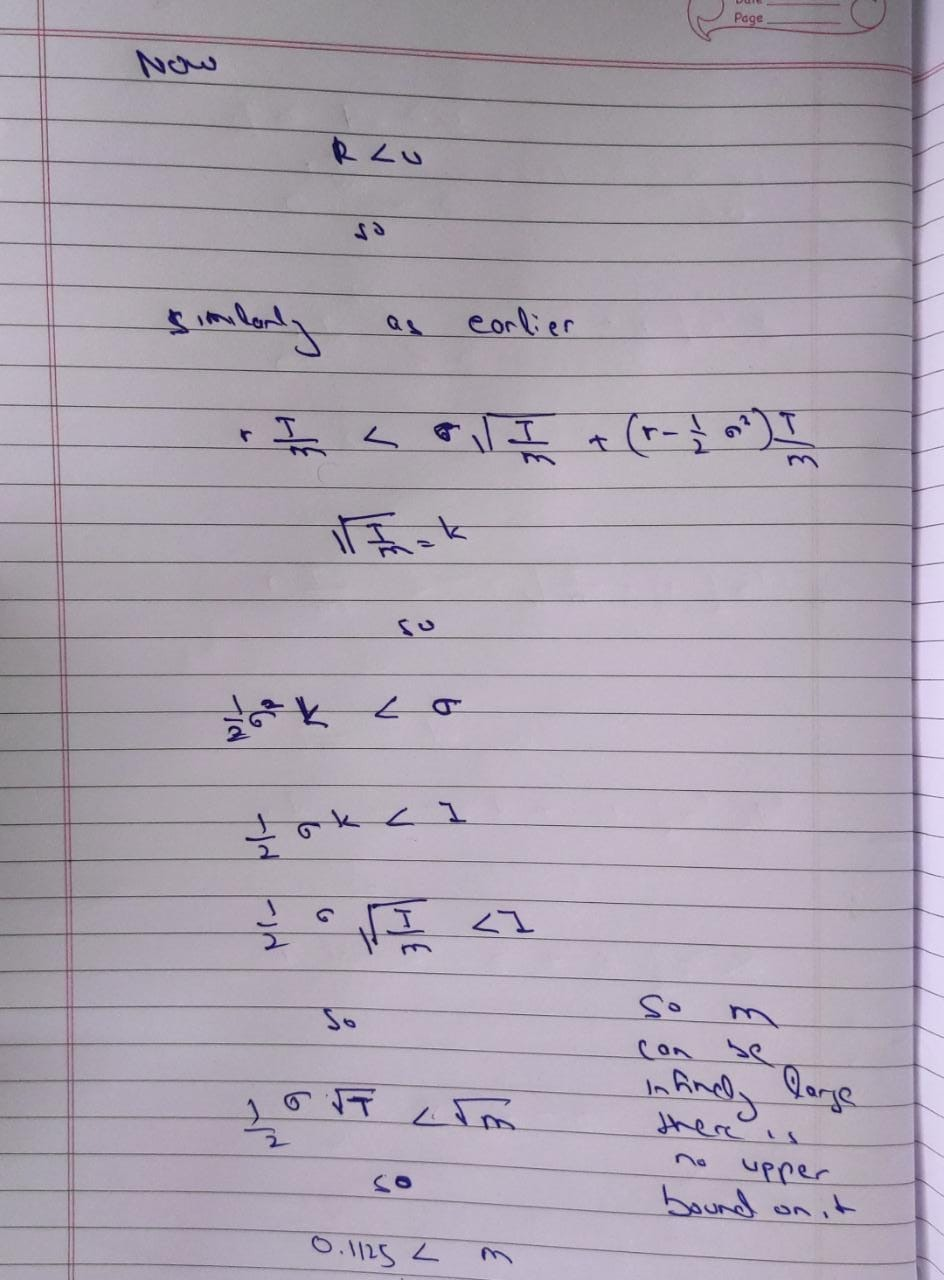 Date
Page
Now
R < u
so
similarly as earlier
r T/m < σ √(T/m) + (r - 1/2 σ²) T/m
√(T/m) = k
so
1/2 σ² k < σ
1/2 σ k < 1
1/2 σ √(T/m) < 1
so
1/2 σ √T < √m
so
0.1125 < m
So m
can be
infinely large
there is
no upper
bound on it